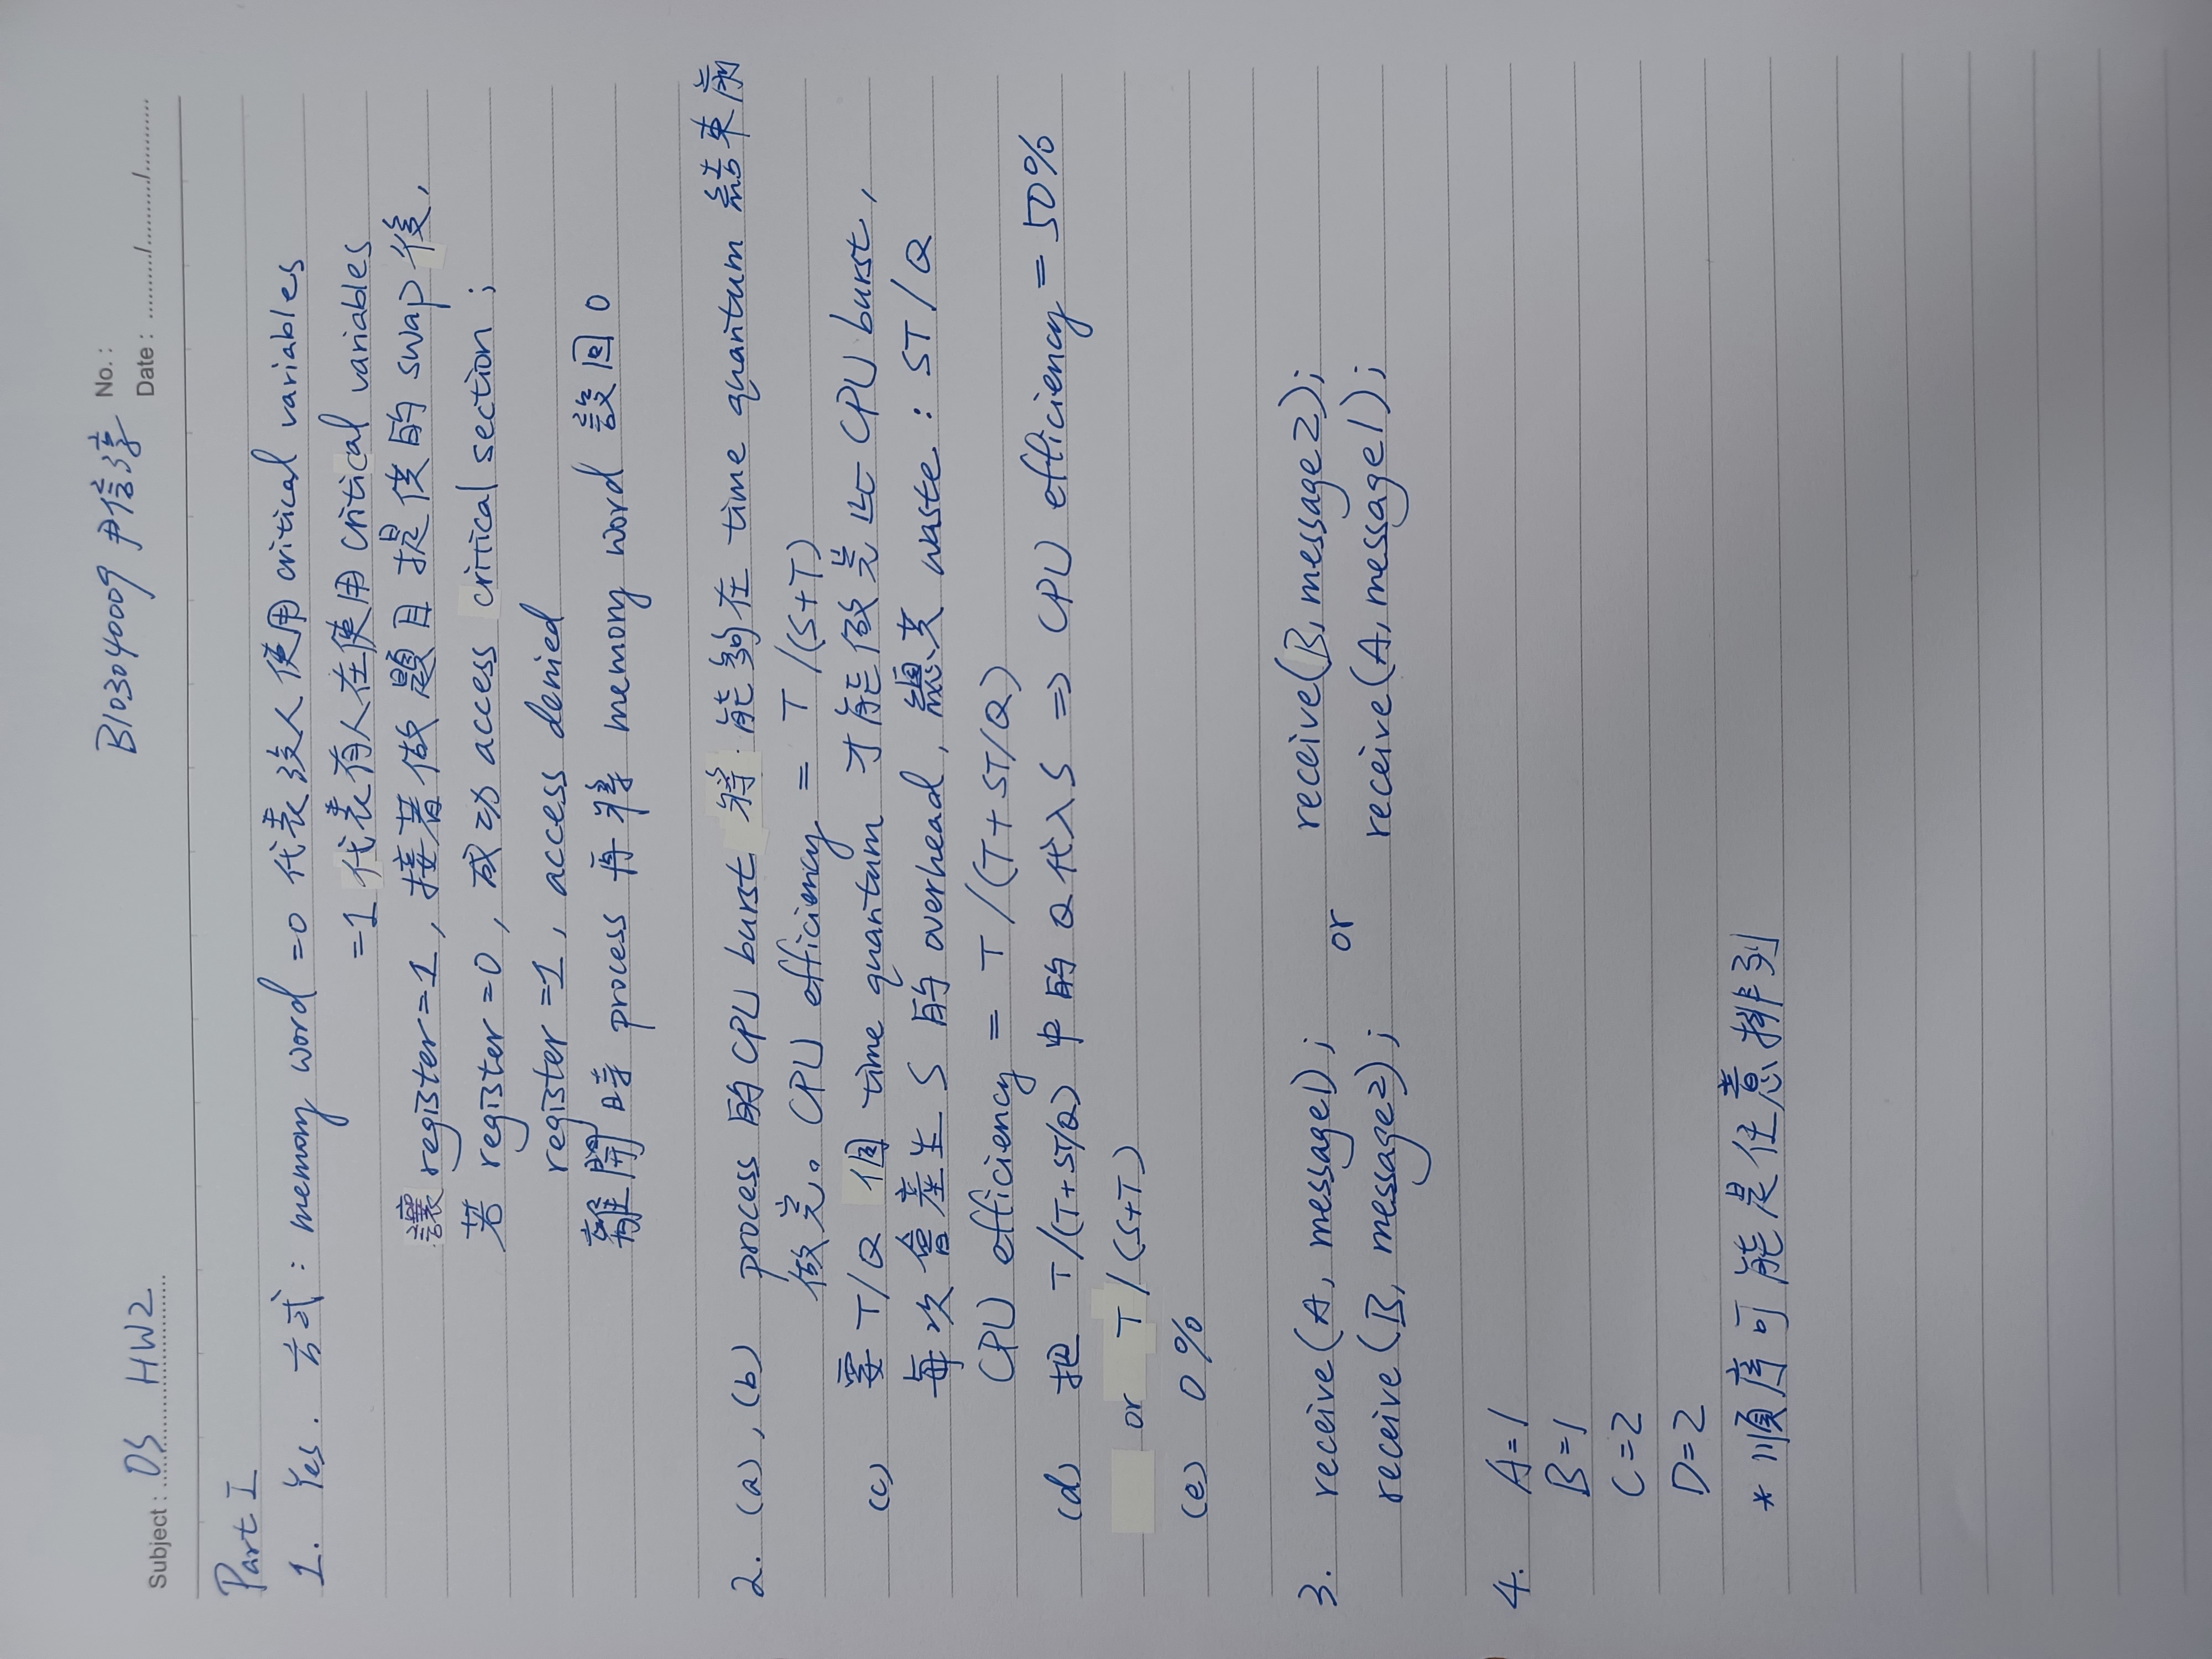 B103040009 尹信淳 No. :
Subject : OS HW2 Date : ........../........../...........
Part I
1. Yes. 方式: memory word =0 代表沒人使用 critical variables
=1 代表有人在使用 critical variables
讓 register=1, 接著做題目提供的 swap 後,
若 register=0, 成功 access critical section ;
register=1, access denied
離開時 process 再將 memory word 設回 0
2. (a), (b) process 的 CPU burst 將能夠在 time quantum 結束前
做完。CPU efficiency = T/(S+T)
(c) 要 T/Q 個 time quantum 才能做完此 CPU burst,
每次會產生 S 的 overhead, 總共 waste : ST/Q
CPU efficiency = T/(T+ST/Q)
(d) 把 T/(T+ST/Q) 中的 Q 代入 S ⇒ CPU efficiency = 50%
or T/(S+T)
(e) 0%
3. receive(A, message1); or receive(B, message2);
receive(B, message2); receive(A, message1);
4. A=1
B=1
C=2
D=2
* 順序可能是任意排列